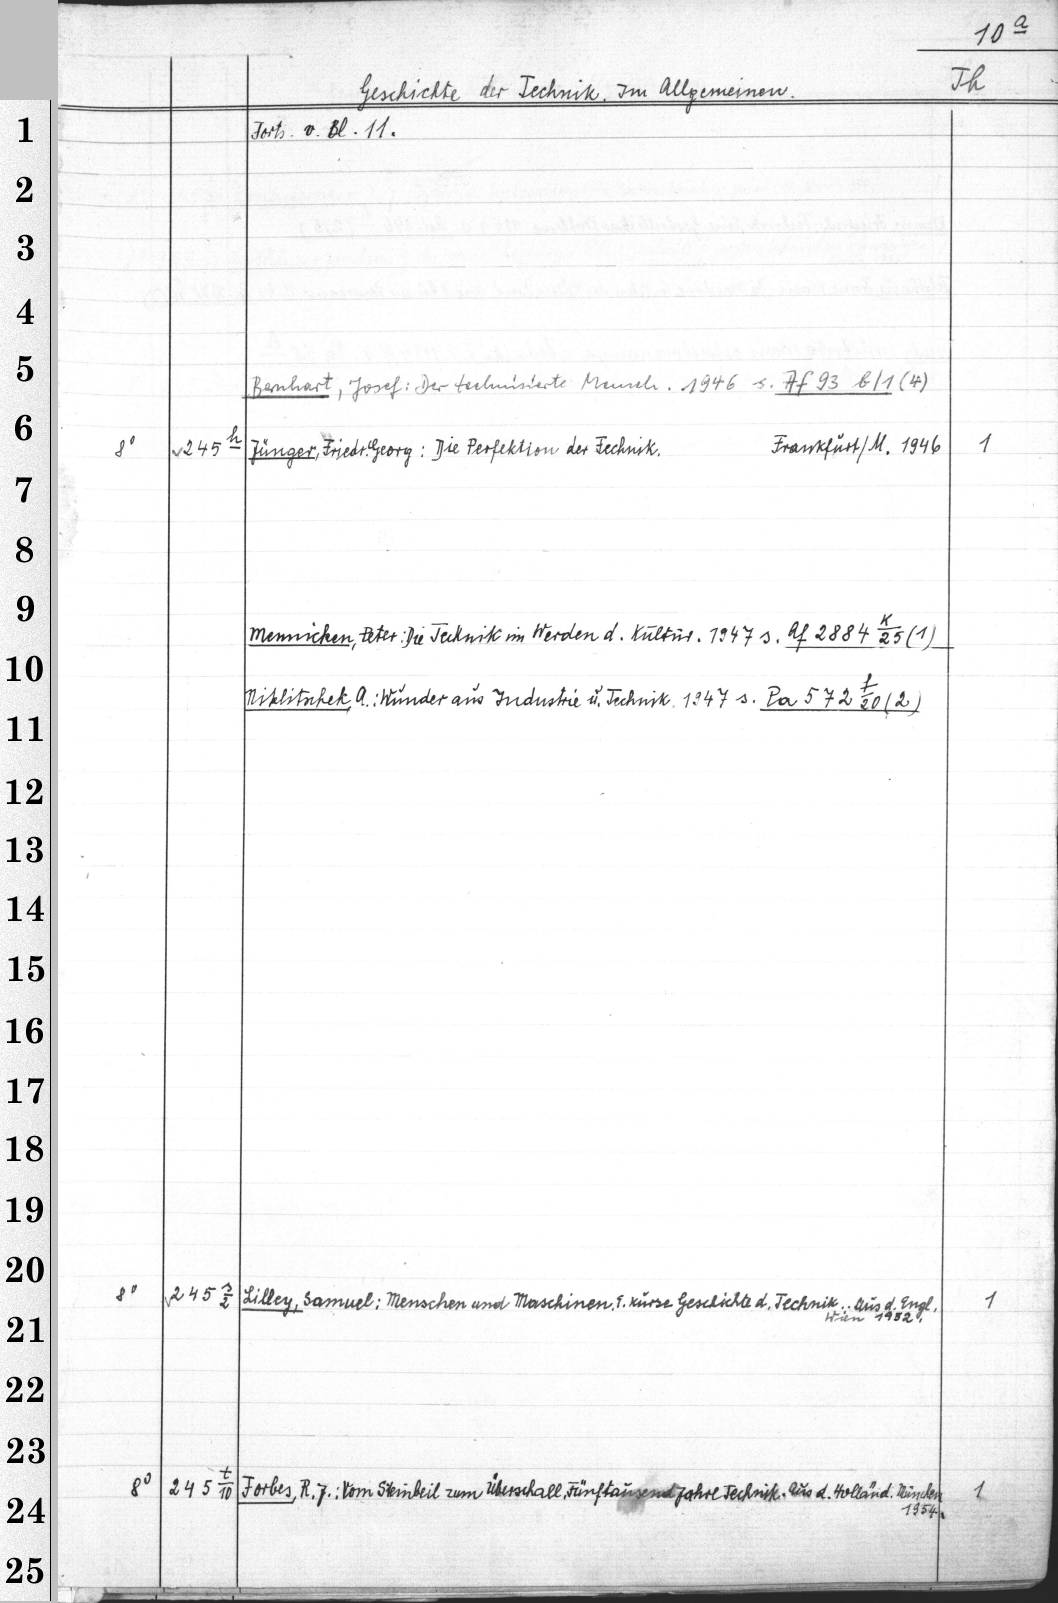 10 a
Geschichte der Technik. Im Allgemeinen. Th
1
Forts. v. Bl. 11.
2
3
4
5
Bernhart, Josef: Der technisierte Mensch. 1946 s. Af 93 b/1 (4)
6
8° 245 h Jünger, Friedr. Georg: Die Perfektion der Technik. Frankfurt/M. 1946 1
7
8
9
Mennicken, Peter: Die Technik im Werden d. Kultur. 1947 s. Af 2884 k/25 (1)
10
Niklitschek, A.: Wunder aus Industrie u. Technik. 1947 s. Pa 572 f/20 (2)
11
12
13
14
15
16
17
18
19
20
8° 245 s/2 Lilley, Samuel: Menschen und Maschinen. E. kurze Geschichte d. Technik.. Aus d. Engl. 1
Wien 1952.
21
22
23
8° 245 t/10 Forbes, R. J.: Vom Steinbeil zum Überschall. Fünftausend Jahre Technik. Aus d. Holländ. München 1
1954.
24
25